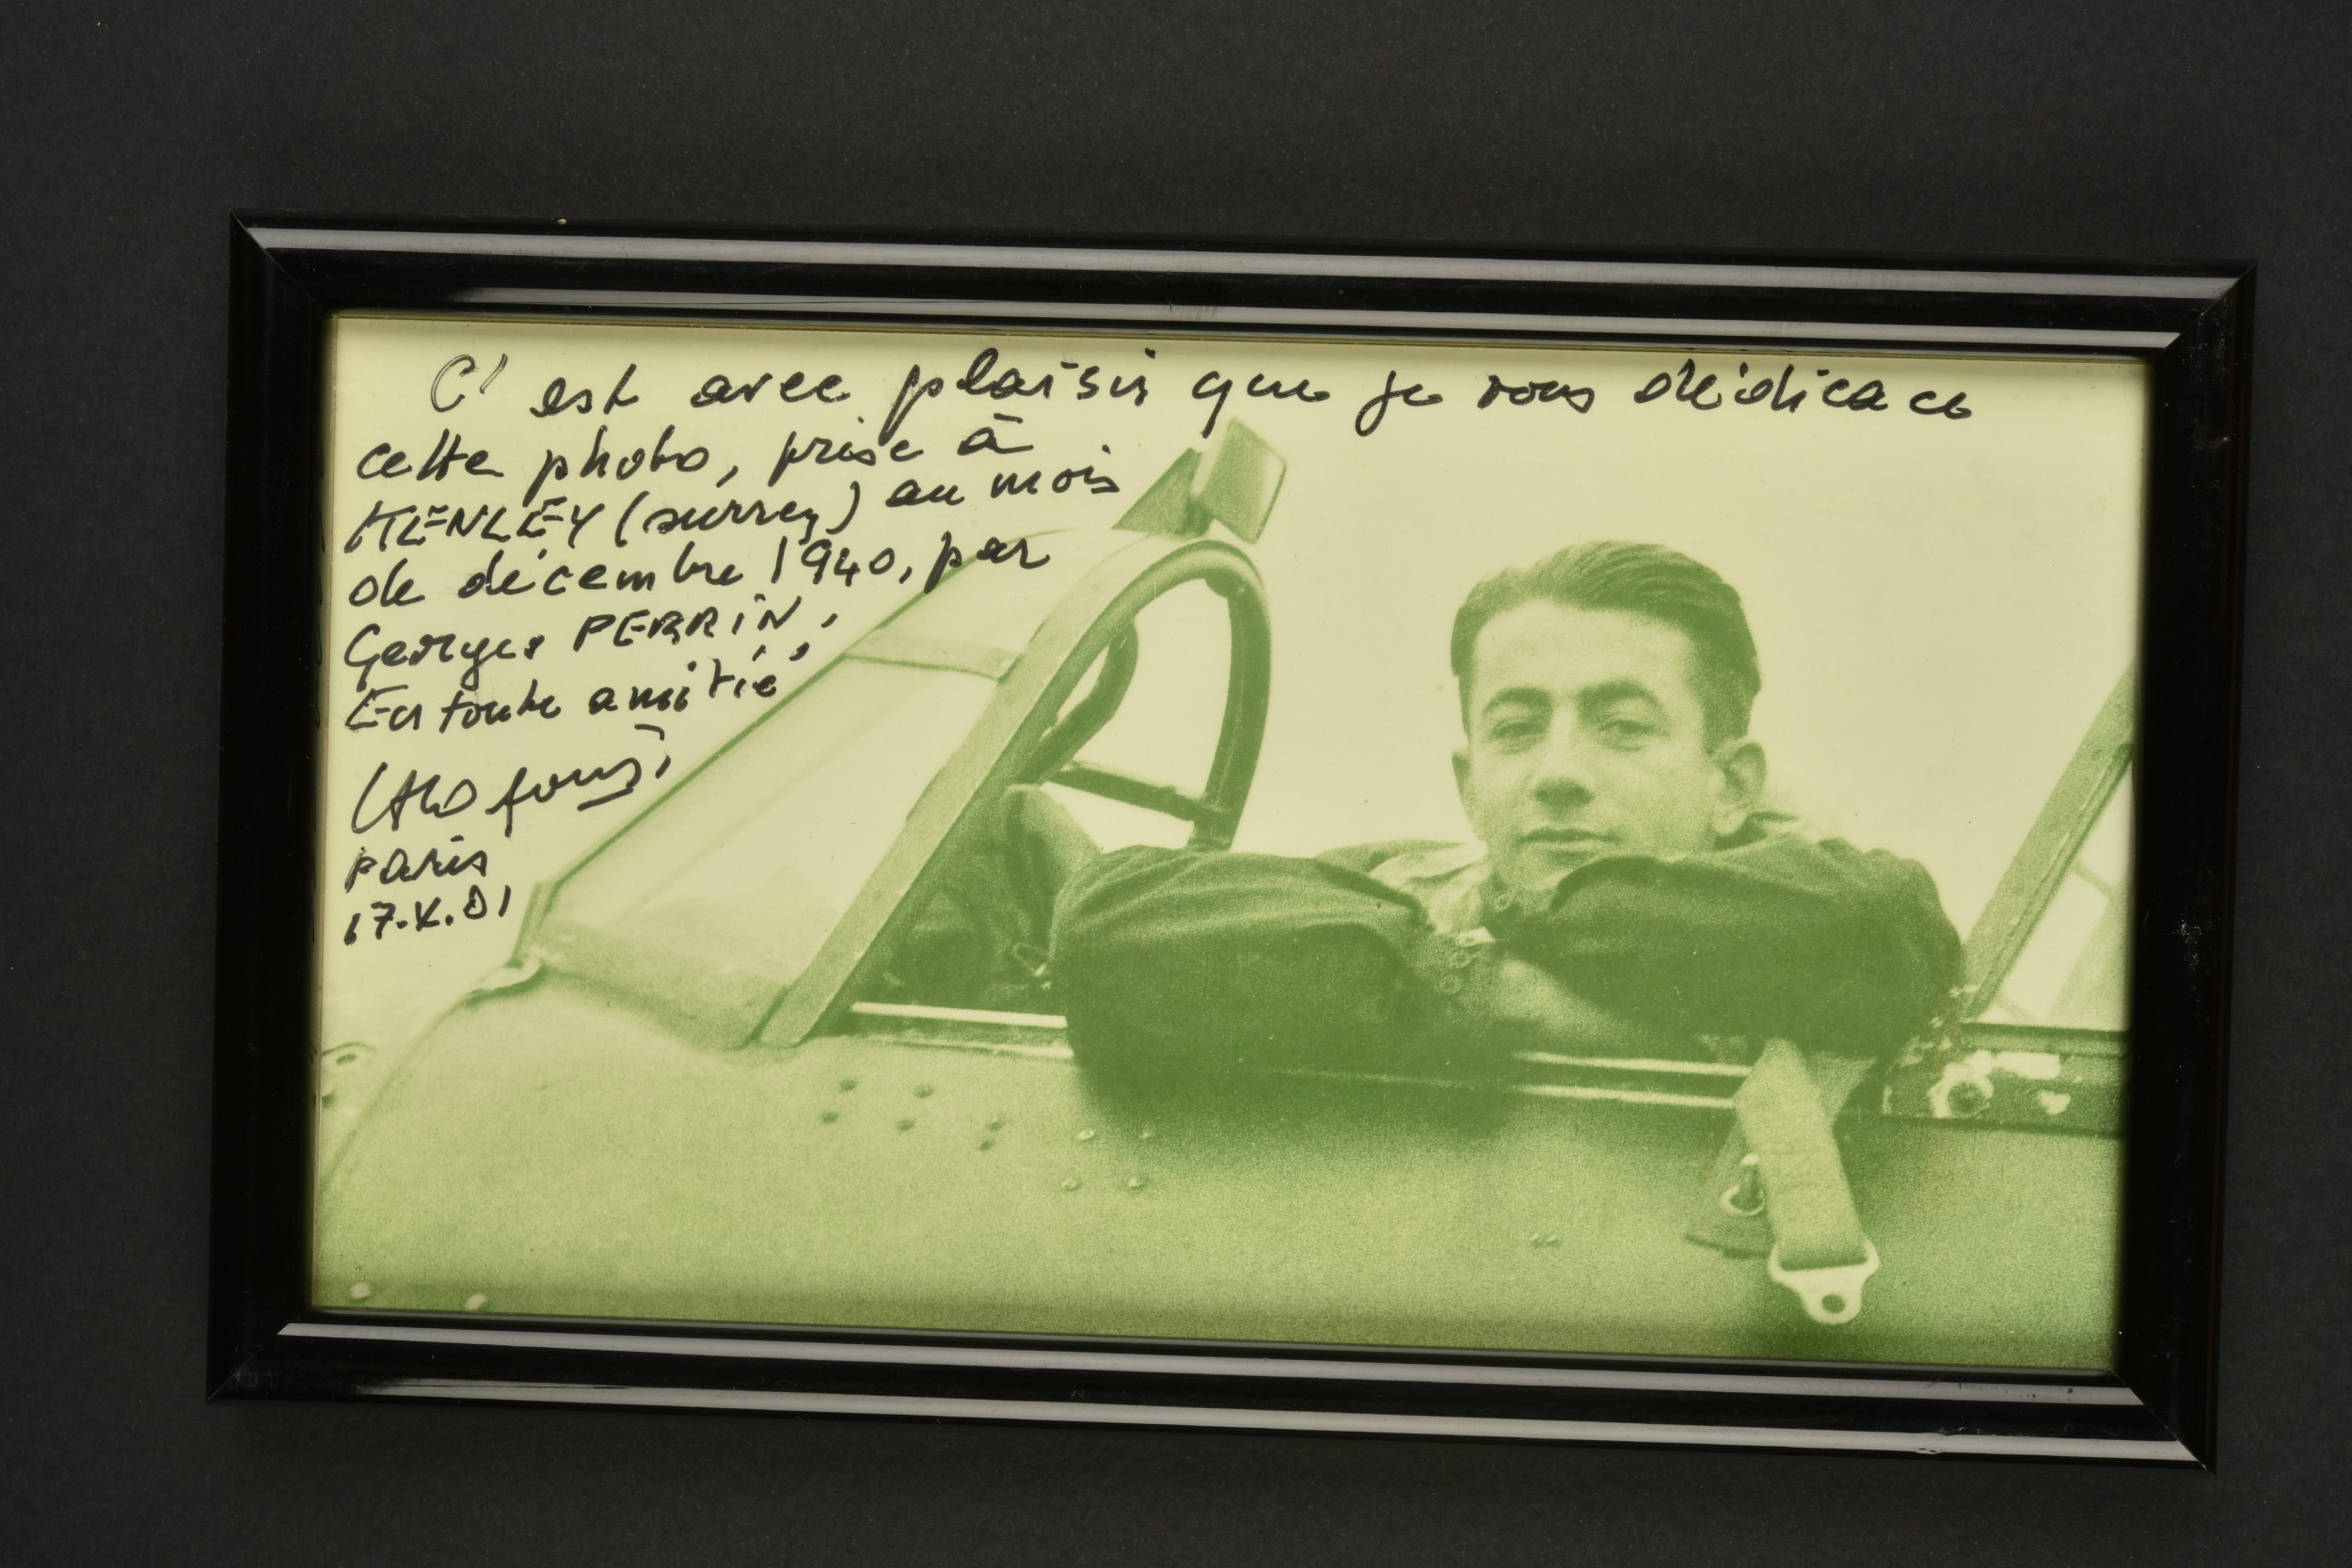 C'est avec plaisir que je vous dédicace
cette photo, prise à
HENLEY (surrey) au mois
de décembre 1940, par
Georges PERRIN,
En toute amitié,
paris
17.X.01